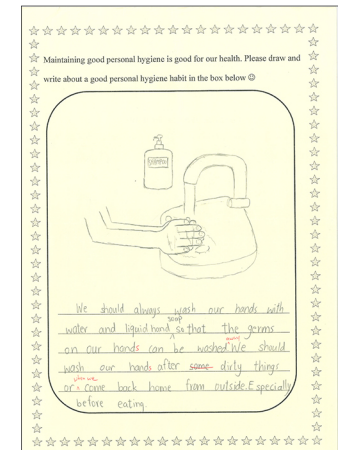 Maintaining good personal hygiene is good for our health. Please draw and
write about a good personal hygiene habit in the box below ☺
We should always wash our hands with
soap
water and liquid hand so that the germs
away
on our hands can be washed We should
wash our hands after some dirty things
when we
or come back home from outside. Especially
before eating.